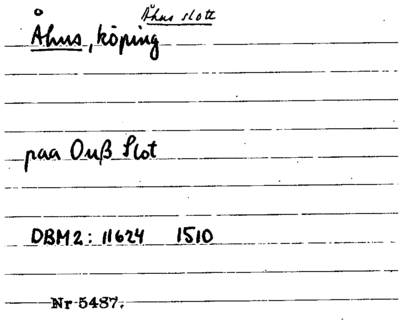 Åhus slott
Åhus, köping
paa Ouß Slot
DBM2: 11624 1510
Nr 5487.